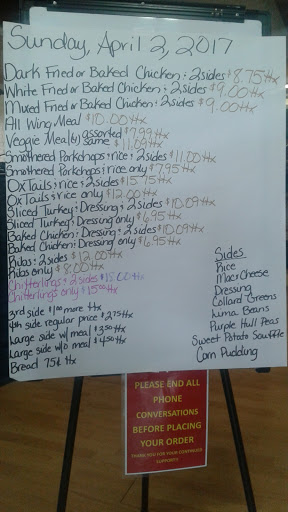 Sunday, April 2, 2017
Dark Fried or Baked Chicken: 2sides $8.75+tx
White Fried or Baked Chicken: 2sides $9.00+tx
Mixed Fried or Baked Chicken: 2sides $9.00+tx
All Wing Meal $10.00+tx
Veggie Meal(4) assorted $7.99+tx
same $11.09+tx
Smothered Porkchops: rice: 2sides $11.00+tx
Smothered Porkchops: rice only $7.95+tx
OxTails: rice: 2sides $15.75+tx
OxTails: rice only $12.00+tx
Sliced Turkey: Dressing: 2sides $10.09+tx
Sliced Turkey: Dressing only $6.95+tx
Baked Chicken: Dressing: 2sides $10.09+tx
Baked Chicken: Dressing only $6.95+tx
Ribs: 2sides $12.00+tx
Ribs only $8.00+tx
Chitterlings: 2 sides $15.00+tx
Chitterlings only $15.00+tx
3rd side $1.00 more +tx
4th side regular price $2.75+tx
Large side w/ meal $3.50+tx
Large side w/o meal $4.50+tx
Bread 75¢ +tx
Sides
Rice
Mac+Cheese
Dressing
Collard Greens
Lima Beans
Purple Hull Peas
Sweet Potato Souffle
Corn Pudding
PLEASE END ALL
PHONE
CONVERSATIONS
BEFORE PLACING
YOUR ORDER
THANK YOU FOR YOUR CONTINUED
SUPPORT!!